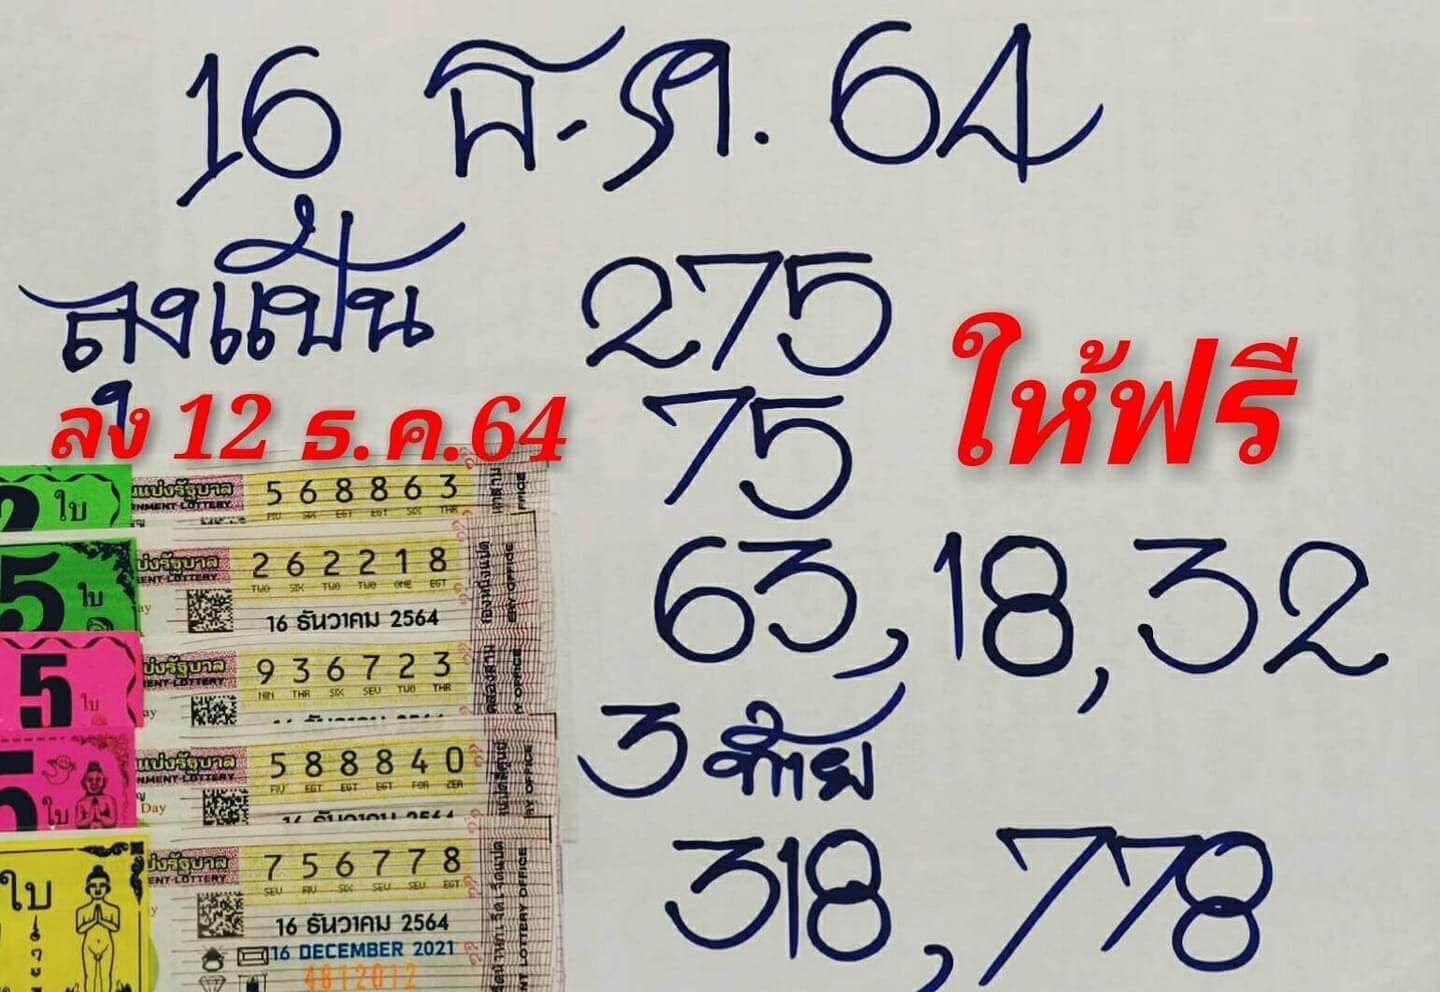 16 ธ.ค. 64
ลุงแป้น 275
ให้ฟรี
75
ลง 12 ธ.ค.64
63, 18, 32
3 ท้าย
318, 778
2 ใบ
แบ่งรัฐบาล
NMENT LOTTERY
568863
FIV SIX EGT EGT SIX THR
5 ใบ
แบ่งรัฐบาล
MENT LOTTERY
262218
TWO SIX TWO TWO ONE EGT
16 ธันวาคม 2564
5 ใบ
แบ่งรัฐบาล
MENT LOTTERY
936723
NIN THR SIX SEV TWO THR
16 ธันวาคม 2564
5 ใบ
แบ่งรัฐบาล
NMENT LOTTERY
588840
FIV EGT EGT EGT FOR ZER
Day
16 ธันวาคม 2564
ใบ
แบ่งรัฐบาล
ENT LOTTERY
756778
SEV FIV SIX SEV SEV EGT
16 ธันวาคม 2564
16 DECEMBER 2021